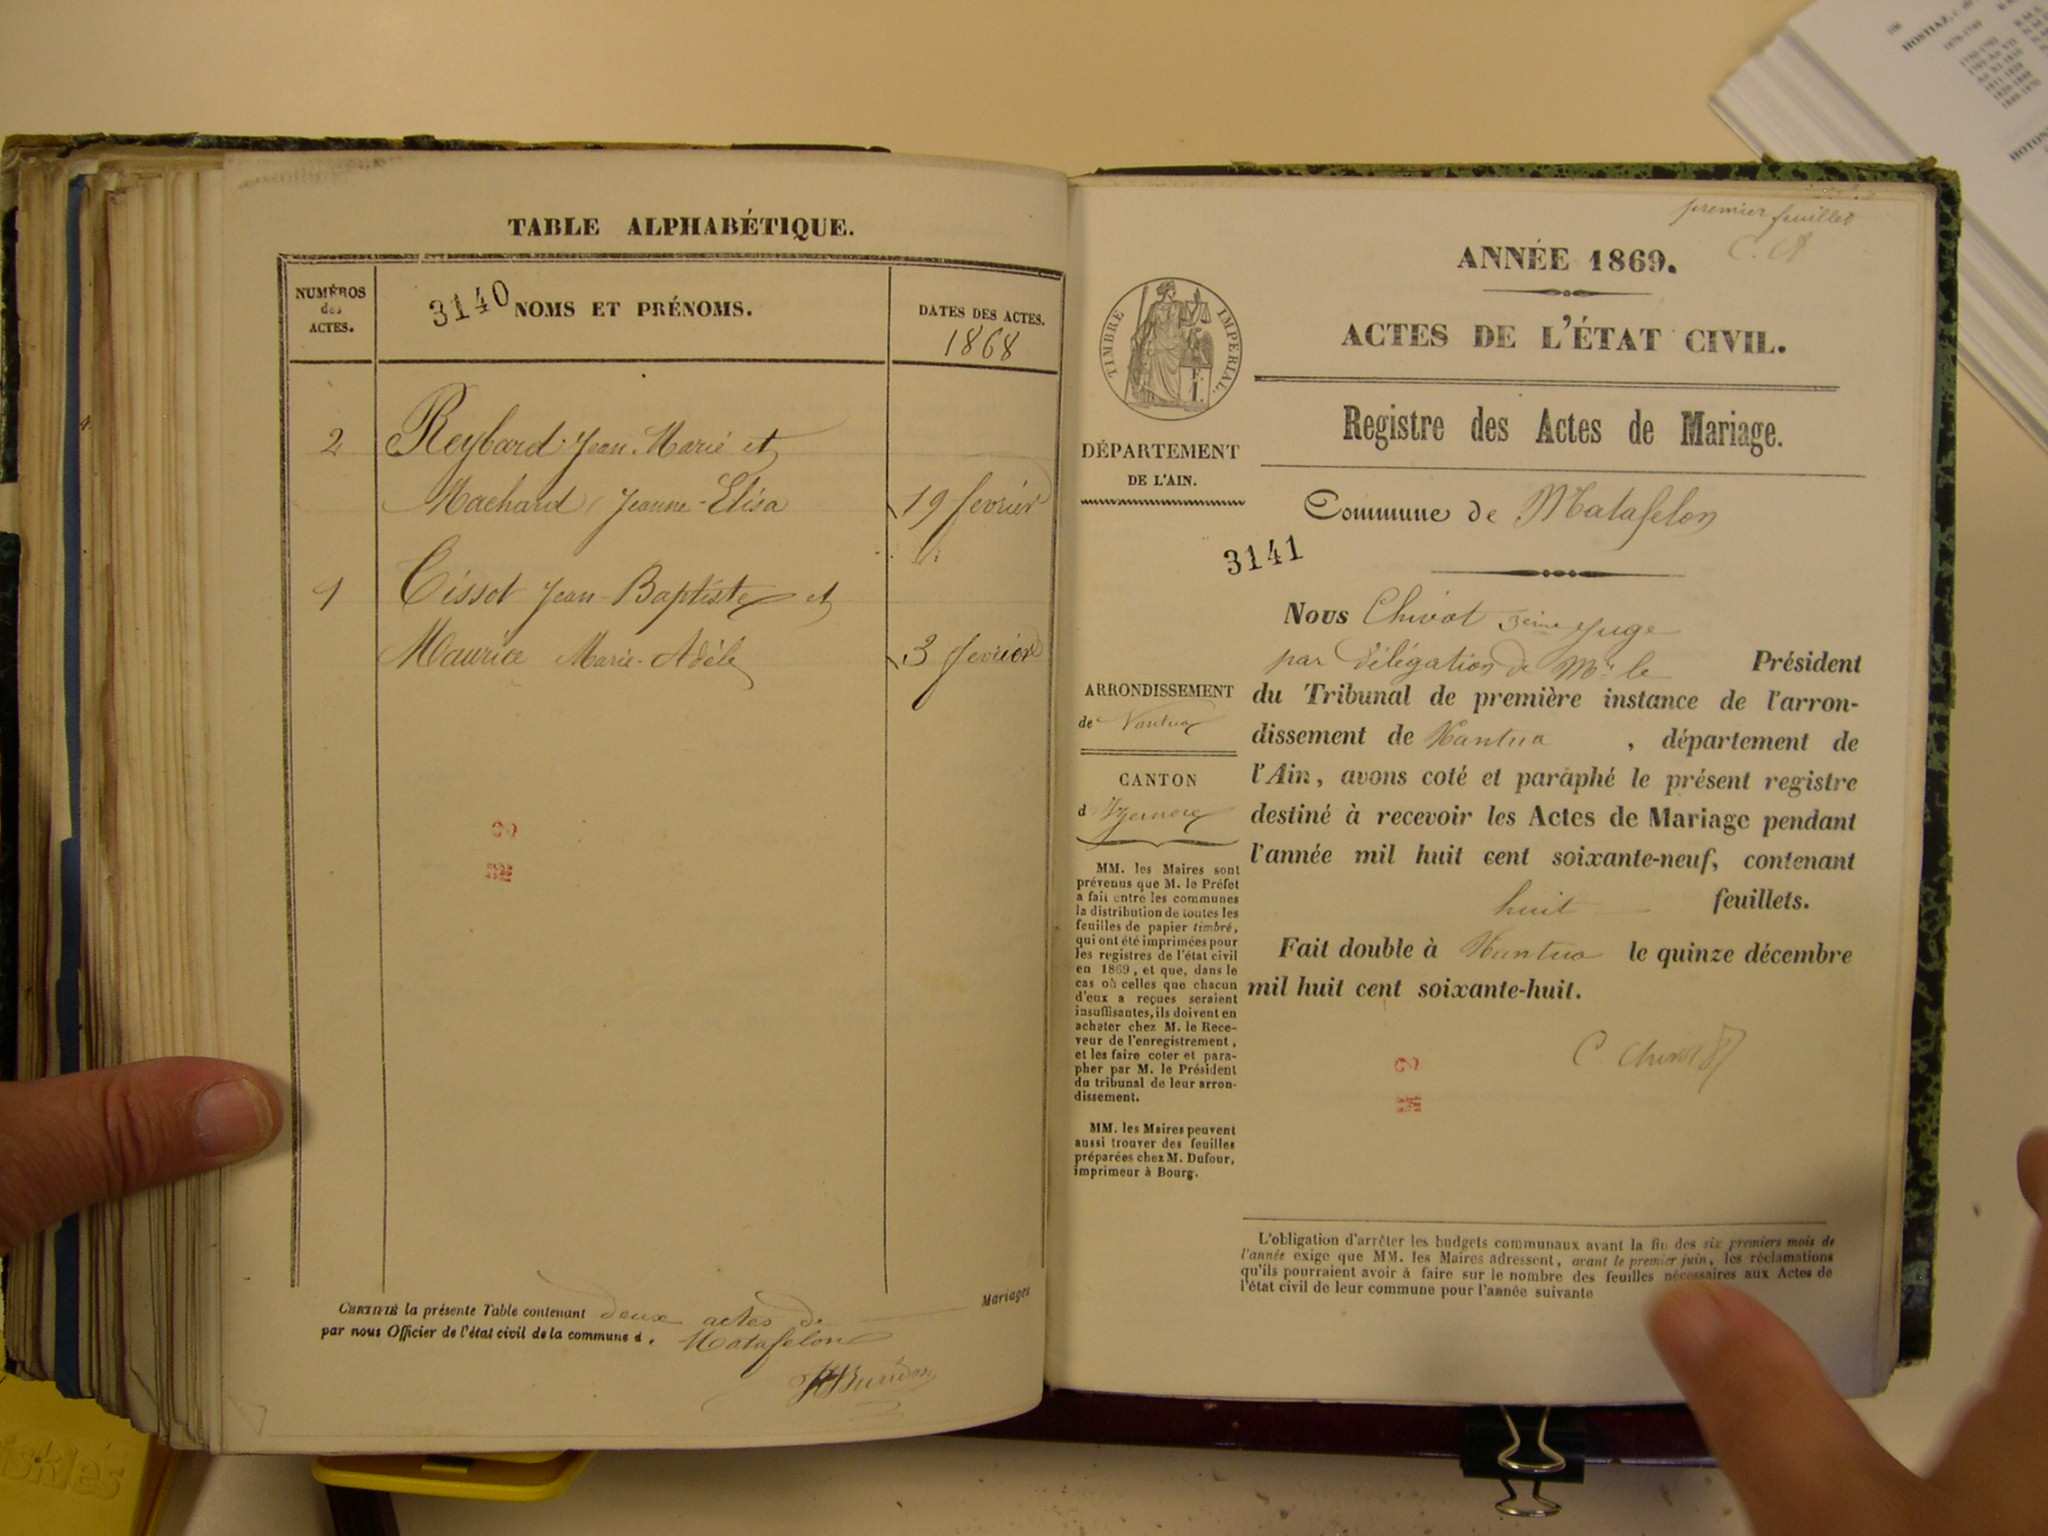 TABLE ALPHABÉTIQUE.
NUMÉROS
des
ACTES.
3140
NOMS ET PRÉNOMS.
DATES DES ACTES.
1868
2 Reybard Jean Marie et
Machard Jeanne-Elisa 19 fevrier
1 Tissot Jean-Baptiste et
Maurice Marie-Adèle 3 fevrier
CERTIFIÉ la présente Table contenant deux actes de Mariages
par nous Officier de l'état civil de la commune d. Matafelon
premier feuillet
ANNÉE 1869.
ACTES DE L'ÉTAT CIVIL.
TIMBRE IMPERIAL.
Registre des Actes de Mariage.
DÉPARTEMENT
DE L'AIN.
Commune de Matafelon
3141
Nous Chivot 3ème Juge
par délégation de Mr le Président
du Tribunal de première instance de l'arron-
dissement de Nantua, département de
l'Ain, avons coté et paraphé le présent registre
destiné à recevoir les Actes de Mariage pendant
l'année mil huit cent soixante-neuf, contenant
huit feuillets.
Fait double à Nantua le quinze décembre
mil huit cent soixante-huit.
ARRONDISSEMENT
de Nantua
CANTON
d'Izernore
MM. les Maires sont
prévenus que M. le Préfet
a fait entre les communes
la distribution de toutes les
feuilles de papier timbré,
qui ont été imprimées pour
les registres de l'état civil
en 1869, et que, dans le
cas où celles que chacun
d'eux a reçues seraient
insuffisantes, ils doivent en
acheter chez M. le Rece-
veur de l'enregistrement,
et les faire coter et para-
pher par M. le Président
du tribunal de leur arron-
dissement.
MM. les Maires peuvent
aussi trouver des feuilles
préparées chez M. Dufour,
imprimeur à Bourg.
L'obligation d'arrêter les budgets communaux avant la fin des six premiers mois de
l'année exige que MM. les Maires adressent, avant le premier juin, les réclamations
qu'ils pourraient avoir à faire sur le nombre des feuilles nécessaires aux Actes de
l'état civil de leur commune pour l'année suivante